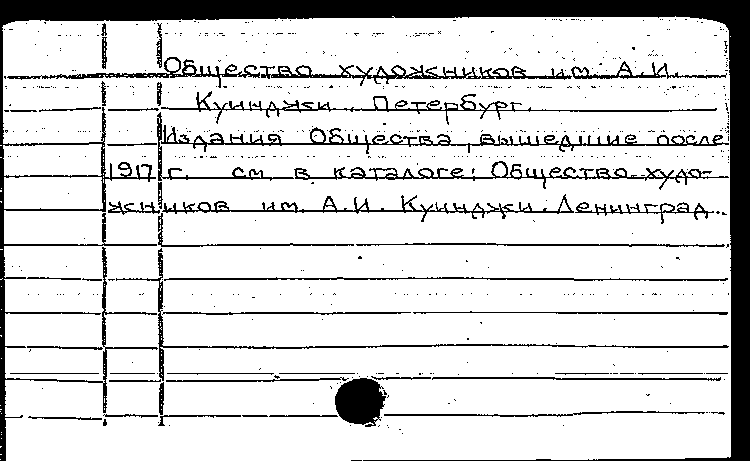 Общество художников им. А.И.
Куинджи. Петербург.
Издания Общества, вышедшие после
1917 г. см. в каталоге: Общество худо-
жников им. А.И. Куинджи. Ленинград.